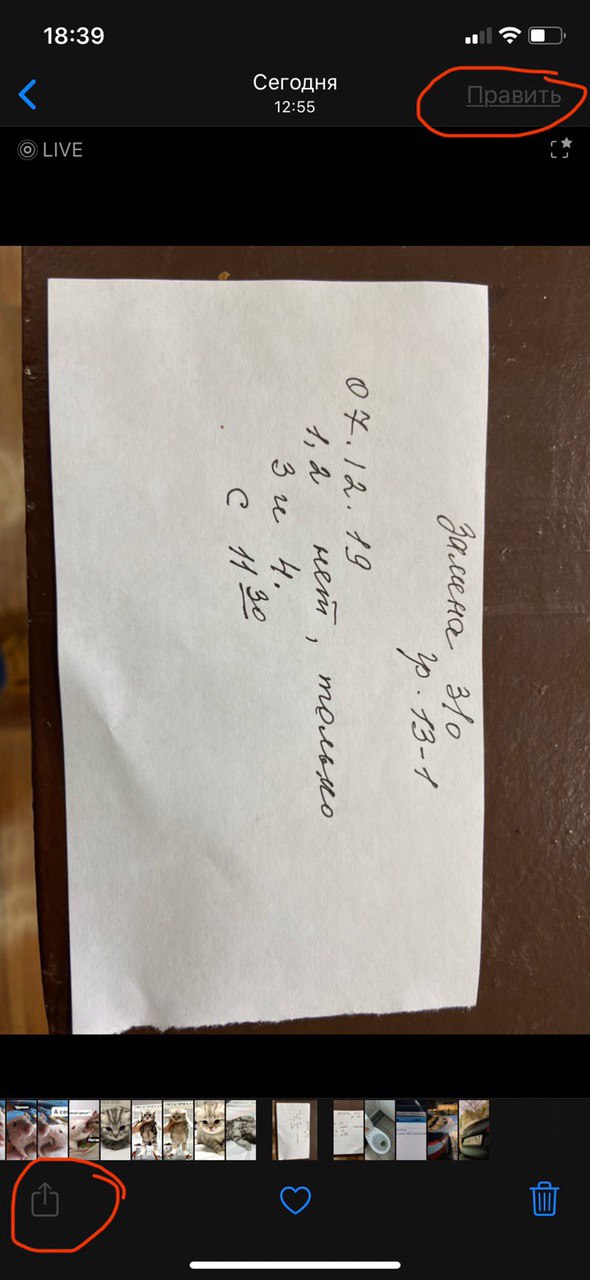 18:39
Сегодня
12:55
Править
LIVE
Замена з/о
гр. 13-1
07.12.19
1,2 нет, только
3 и 4.
с 11 30